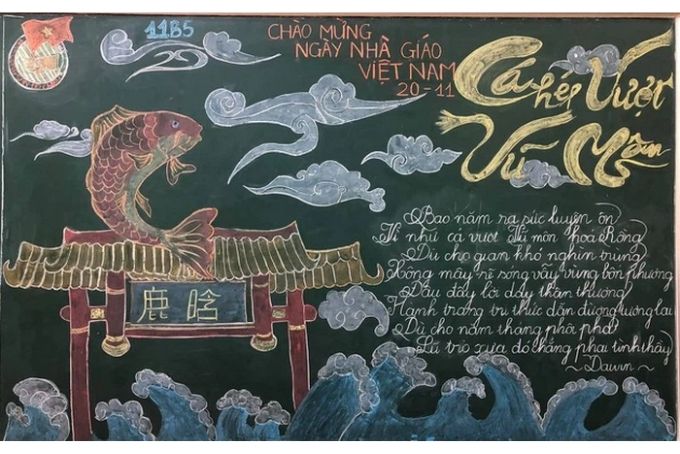 11B5
CHÀO MỪNG
NGÀY NHÀ GIÁO
VIỆT NAM
20-11
Cá hép Vượt
Vũ Môn
鹿晗
Bao năm ra sức luyện ôn
Ví như cá vượt Vũ môn hoá Rồng
Dù cho gian khó nghìn trùng
Sông mây rẽ sóng vẫy vùng bốn phương
Dẫu đây lời dạy thân thương
Hành trang tri thức dẫn đường tương lai
Dù cho năm tháng phôi phai
Lũ trò xưa đó chẳng phai tình thầy
~ Dawn ~